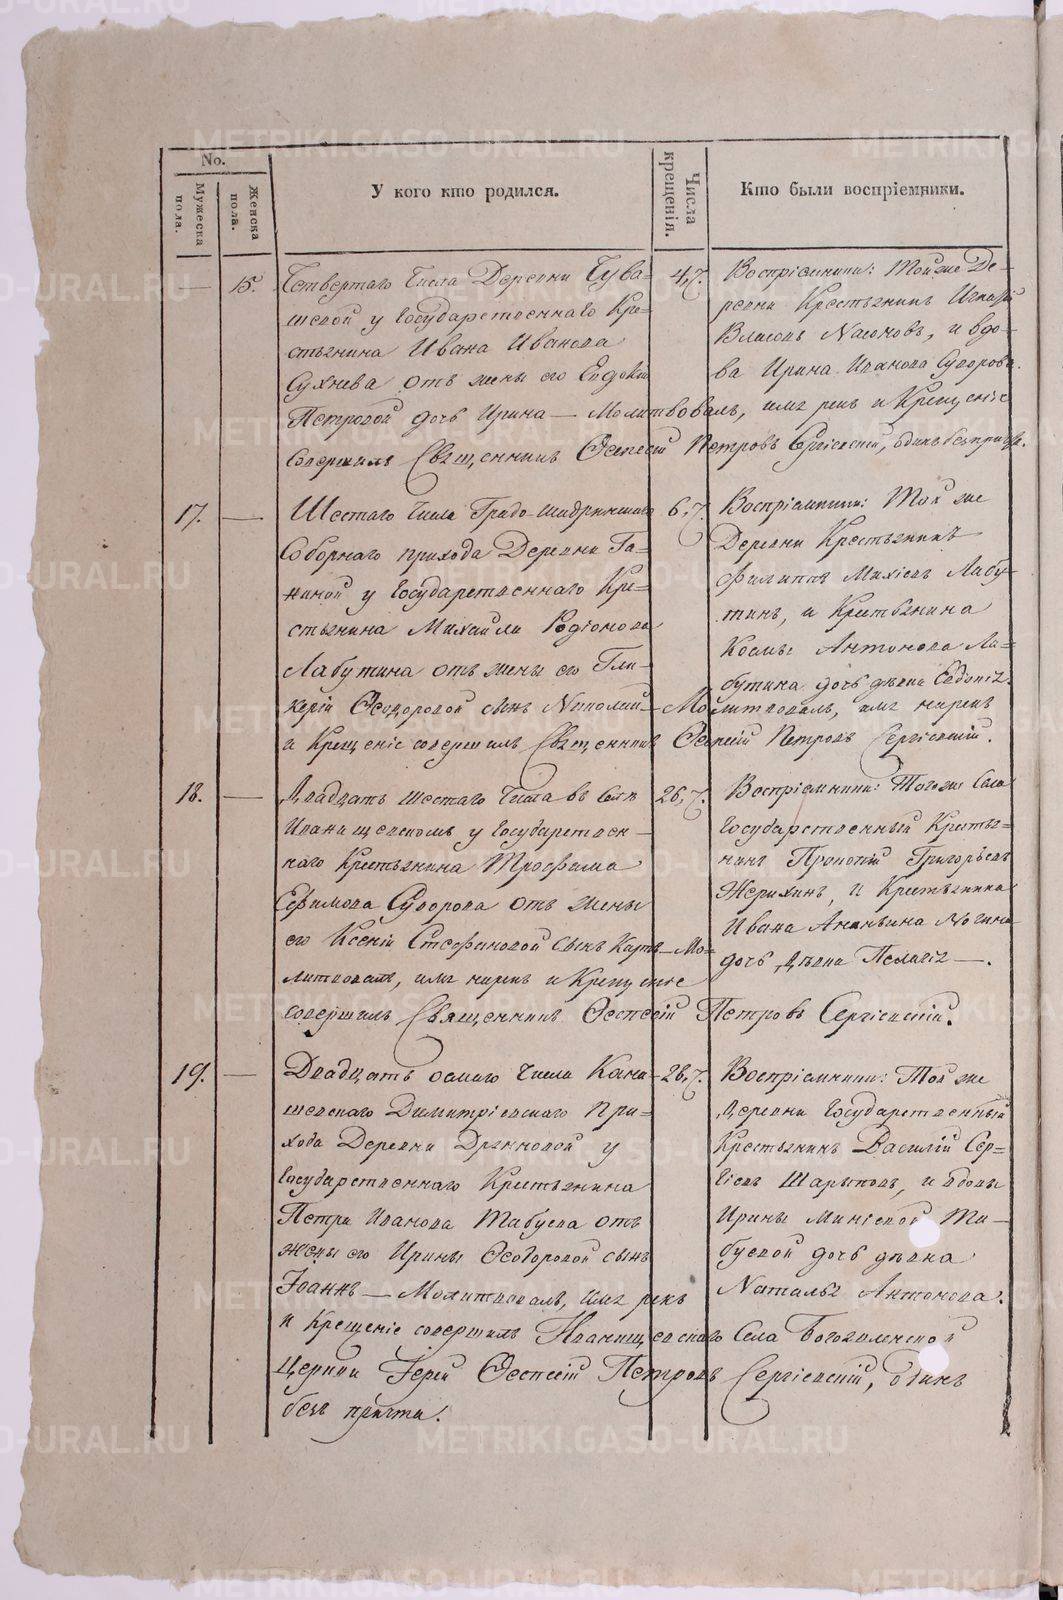 No.
Мужеска пола.
Женска пола.
У кого кто родился.
Числа крещенія.
Кто были воспріемники.
15.
Четвертаго числа Деревни Чува-
шевой у Государственнаго Кре-
стьянина Ивана Иванова
Сухнева отъ жены его Евдокіи
Петровой дочь Ирина — Молитвовалъ, имя рекъ и Крещеніе
совершилъ Священникъ Петровъ Сергіевскій, одинъ безъ причта.
4,7.
Воспріемники: Той же Де-
ревни Крестьянинъ Игнатій
Власовъ Насоновъ, и вдо-
ва Ирина Иванова Суворова.
17.
Шестаго числа Градо-шадринскаго
Соборнаго прихода Деревни Га-
ниной у Государственнаго Кре-
стьянина Михаила Родіонова
Лабутина отъ жены его Гли-
керіи Ѳеодоровой сынъ Николай — Молитвовалъ, имя нарекъ
и Крещеніе совершилъ Священникъ Петровъ Сергіевскій.
6,7.
Воспріемники: Той же
Деревни Крестьянинъ
Филиппъ Михѣевъ Лабу-
тинъ, и Крестьянина
Космы Антонова Ла-
бутина дочь дѣвка Евдокія.
18.
Двадцать шестаго числа въ Селѣ
Иванищевскомъ у Государствен-
наго Крестьянина Трофима
Ефимова Суворова отъ жены
его Ксеніи Стефановой сынъ Карпъ — Мо-
литвовалъ, имя нарекъ и Крещеніе
совершилъ Священникъ Петровъ Сергіевскій.
26,7.
Воспріемники: Того же Села
Государственный Крестья-
нинъ Прокопій Григорьевъ
Жерихинъ, и Крестьянина
Ивана Ананьина
дочь дѣвка Пелагія —.
19.
Двадцать осмаго числа Кана-
шевскаго Димитріевскаго При-
хода Деревни Дрянновой у
Государственнаго Крестьянина
Петра Иванова Табуева отъ
жены его Ирины Ѳеодоровой сынъ
Іоаннъ — Молитвовалъ, имя рекъ
и Крещеніе совершилъ Иванищевскаго Села Богоявленской
Церкви Іерей Петровъ Сергіевскій, одинъ
безъ причта.
28,7.
Воспріемники: Той же
Деревни Государственный
Крестьянинъ Василій Сер-
гіевъ Шарыповъ, и вдовы
Ирины Минѣевой Та-
буевой дочь дѣвка
Наталья Антонова.
METRIKI.GASO-URAL.RU